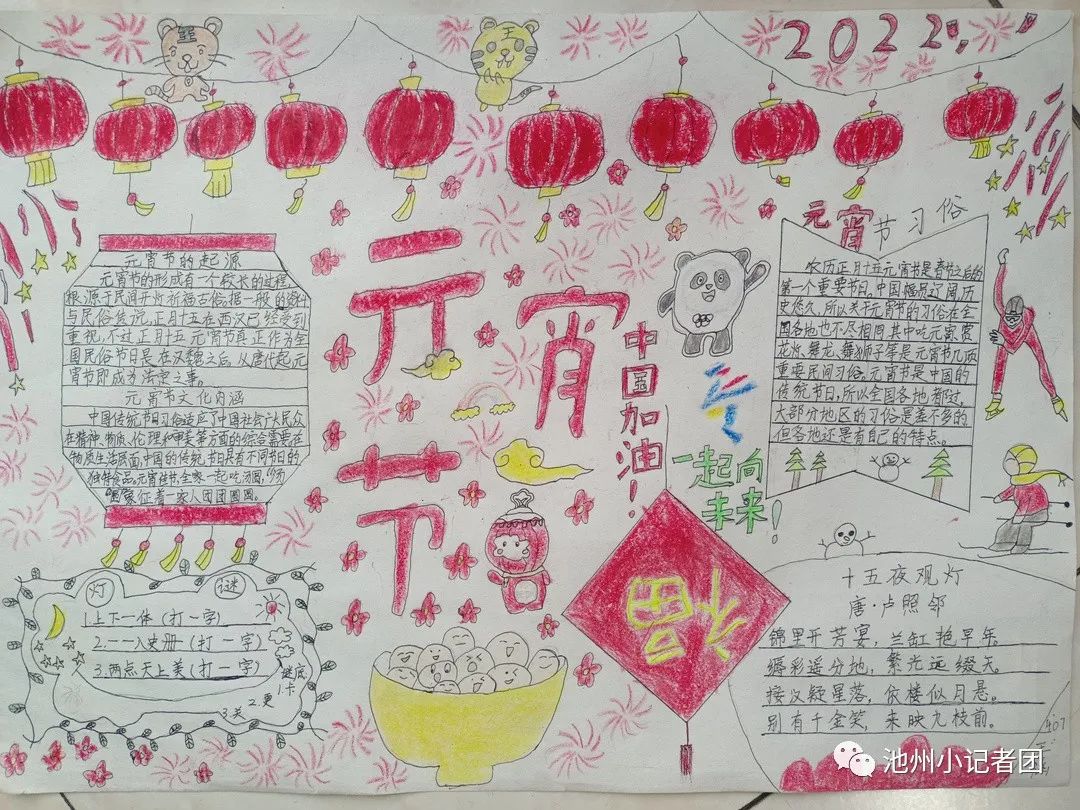 2022
元宵节
元宵节的起源
元宵节的形成有一个较长的过程
根源于民间开灯祈福古俗据一般的资料
与民俗传说,正月十五在西汉已经受到
重视,不过正月十五元宵节真正作为全
国民俗节日是在汉魏之后,从唐代起,元
宵节即成为法定之事。
元宵节文化内涵
中国传统节日习俗适应了中国社会广大民众
在精神、物质、伦理和审美等方面的综合需要在
物质生活层面,中国的传统节日具有不同节日的
独特食品。元宵佳节,全家一起吃汤圆,
象征着一家人团团圆圆。
灯谜
1.上下一体(打一字)
2.一一入史册(打一字)
3.两点天上美(打一字)
谜底
1.卡
2.更
3.关
中国加油!
一起向
未来!
福
元宵节习俗
农历正月十五元宵节是春节之后的
第一个重要节日,中国幅员辽阔,历
史悠久,所以关于元宵节的习俗在全
国各地也不尽相同,其中吃元宵、赏
花灯、舞龙、舞狮子等是元宵节几项
重要民间习俗。元宵节是中国的
传统节日,所以全国各地都过,
大部分地区的习俗是差不多的
但各地还是有自己的特点。
十五夜观灯
唐·卢照邻
锦里开芳宴,兰缸艳早年。
缛彩遥分地,繁光远缀天。
接汉疑星落,依楼似月悬。
别有千金笑,来映九枝前。
407
池州小记者团